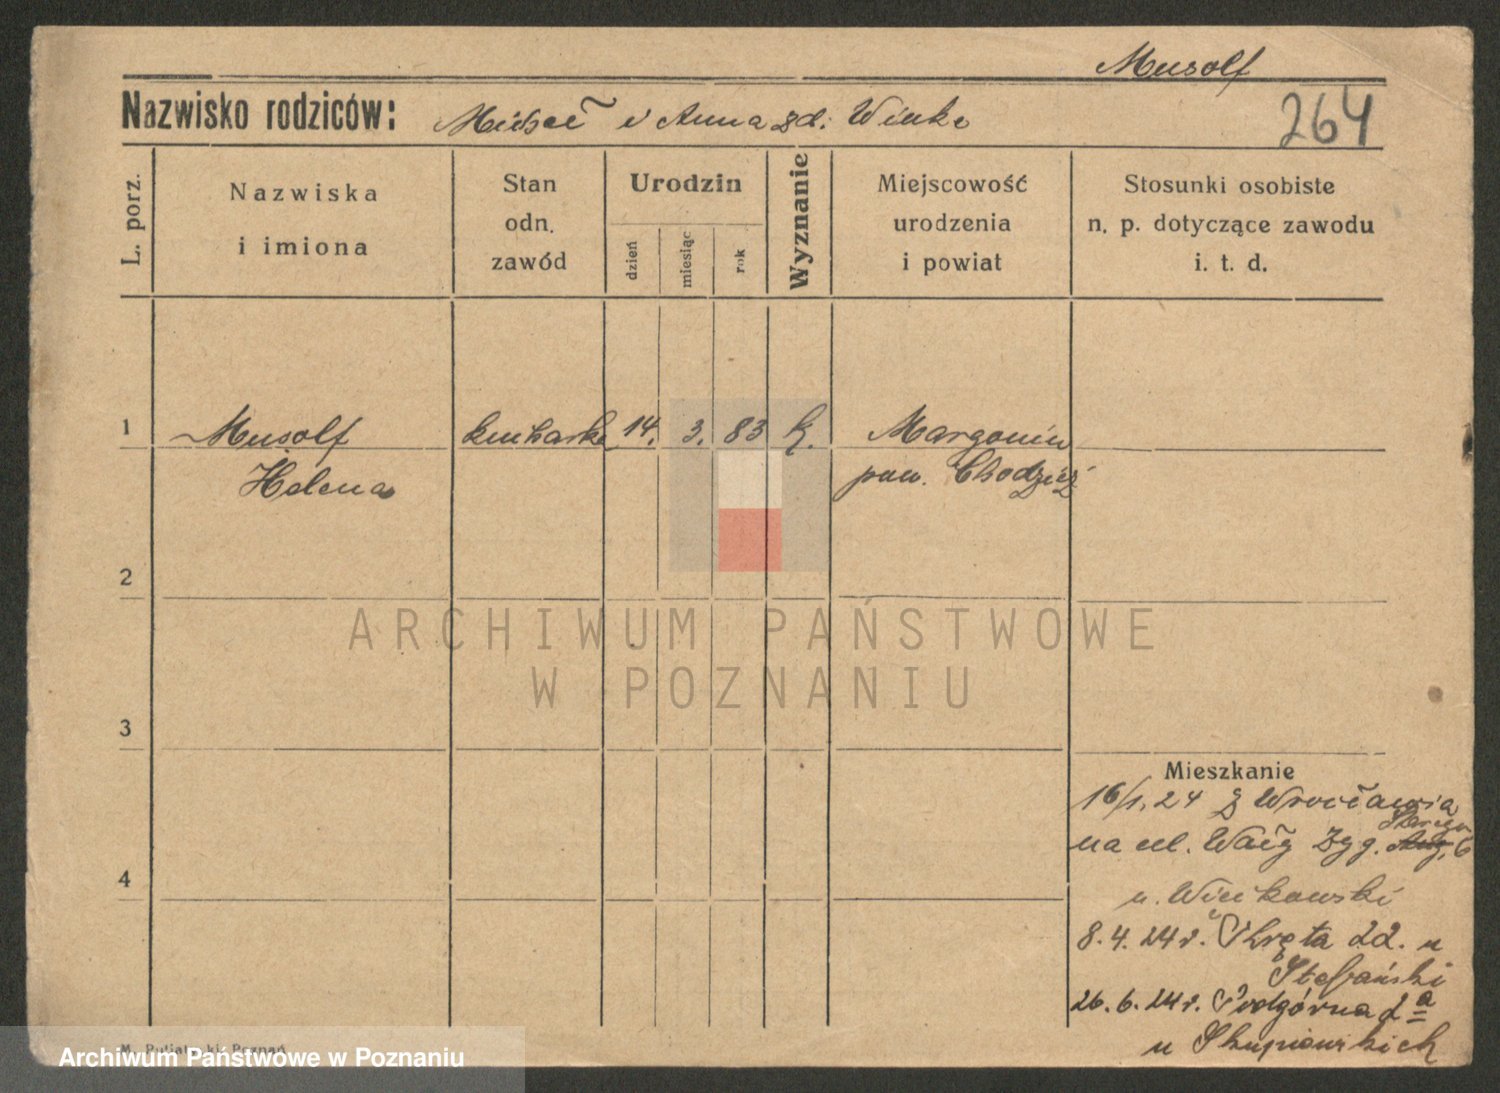 Musolf
Nazwisko rodziców: Michał i Anna zd. Winke
264
L. porz.
Nazwiska
i imiona
Stan
odn.
zawód
Urodzin
dzień
miesiąc
rok
Wyznanie
Miejscowość
urodzenia
i powiat
Stosunki osobiste
n. p. dotyczące zawodu
i. t. d.
1 Musolf kucharka 14. 3. 83 k. Margonin
Helena pow. Chodzież
2
ARCHIWUM PAŃSTWOWE
W POZNANIU
3
Mieszkanie
16/1. 24 z Wrocławia
na ul. Wały Zyg. 6
4
u. Więckowski
8. 4. 24 r. Kręta 22. u
Stefański
26. 6. 24 r. Podgórna 2a
u Skupieńskich
Poznań
Archiwum Państwowe w Poznaniu